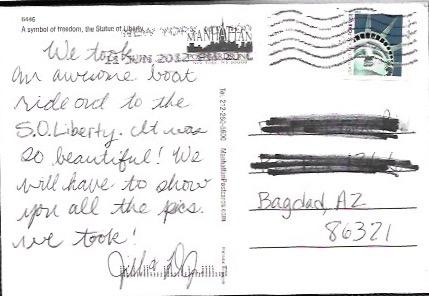 6446
A symbol of freedom, the Statue of Liberty
MANHATTAN
21 JUN 2012
We took
an awsome boat
ride out to the
S.O. Liberty. It was
so beautiful! We
will have to show
you all the pics.
we took!
ManhattanPostcards.com
Bagdad, AZ
86321